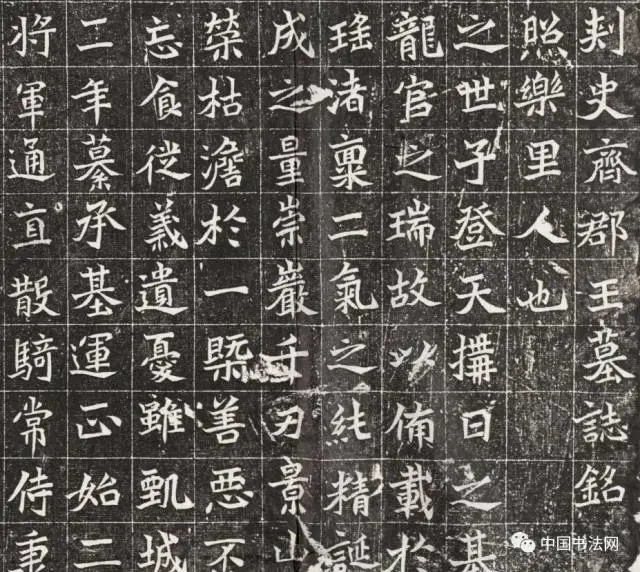 刾史齊郡王墓誌銘
照樂里人也
之世子登天構日之基
龍官之瑞故以備載於
瑤渚稟二氣之純精誕
成之量崇巖千刃景山
榮枯澹於一槩善惡不
忘飡從義遺憂雖凱城
二年纂承基運正始二
將軍通直散騎常侍秉
中国书法网